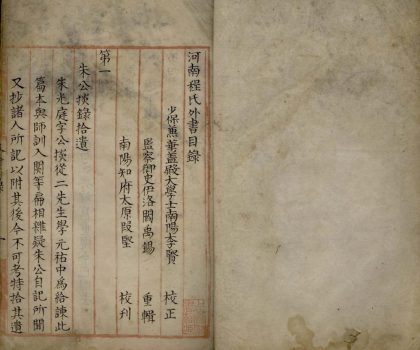 河南程氏外書目錄
少保蕪華蓋殿大學士南陽李賢 校正
監察御史伊洛閻禹錫 重輯
南陽知府太原段堅 校刊
第一
朱公掞錄拾遺
朱光庭字公掞從二先生學元祐中為給諫此
篇本與師訓入關等篇相雜疑朱公自記所聞
又抄諸人所記以附其後今不可考特拾其遺